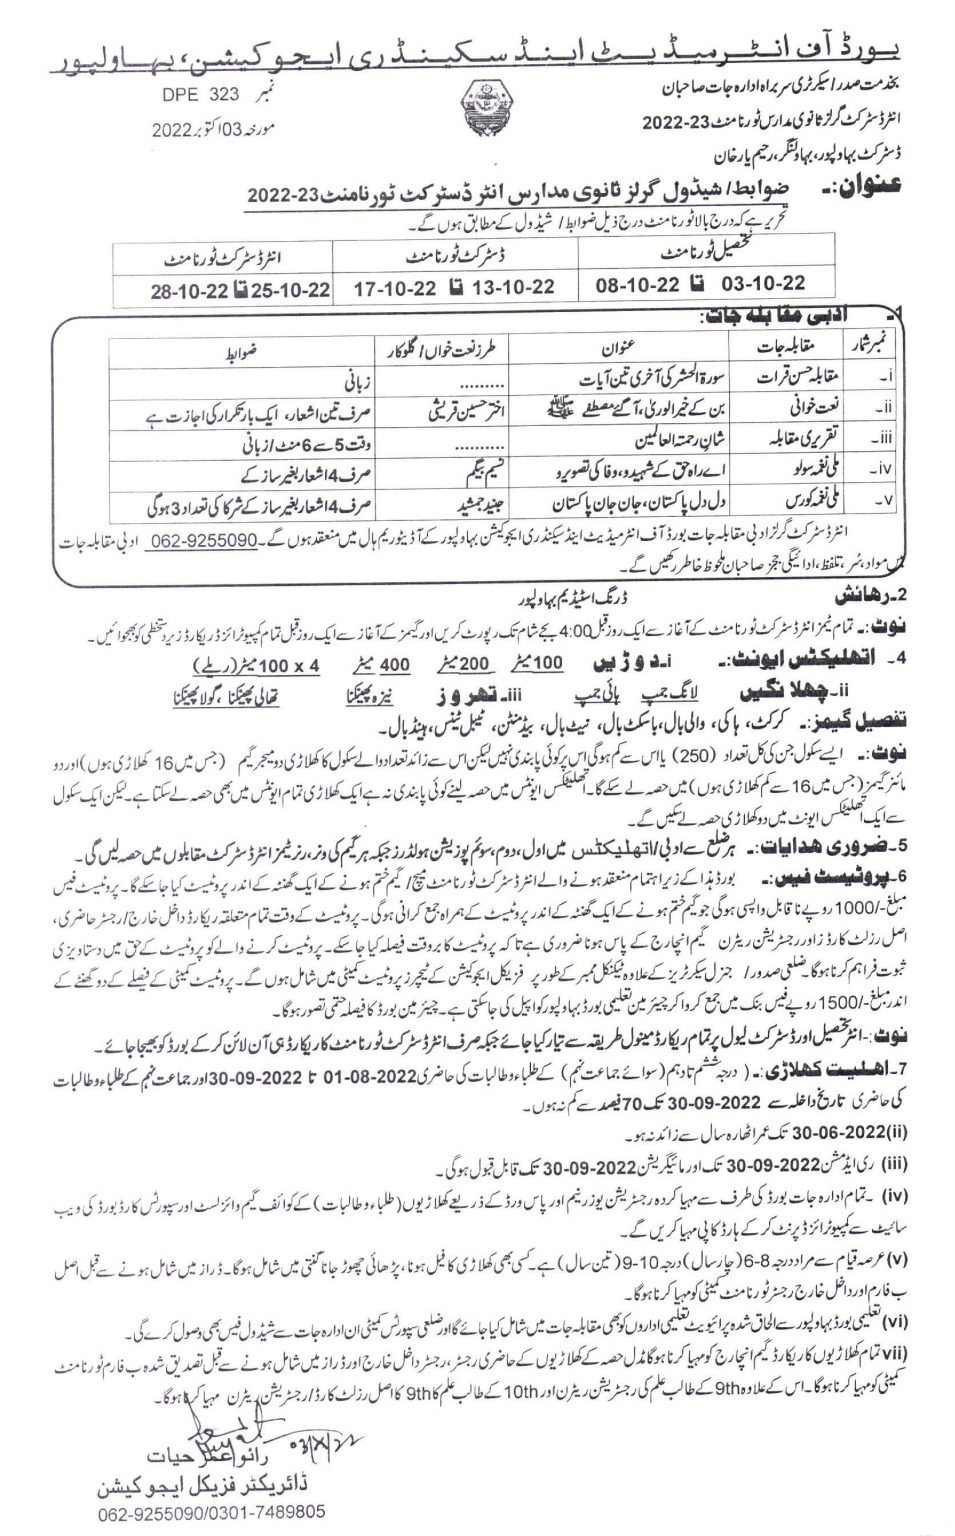 بورڈ آف انٹرمیڈیٹ اینڈ سکینڈری ایجوکیشن، بہاولپور
بخدمت صدر/سیکرٹری سربراہ ادارہ جات صاحبان
نمبر DPE 323
انٹر ڈسٹرکٹ گرلز ثانوی مدارس ٹورنامنٹ 23-2022
مورخہ 03 اکتوبر 2022
ڈسٹرکٹ بہاولپور، بہاولنگر، رحیم یار خان
عنوان:۔ ضوابط/شیڈول گرلز ثانوی مدارس انٹر ڈسٹرکٹ ٹورنامنٹ 23-2022
تحریر ہے کہ درج بالا ٹورنامنٹ درج ذیل ضوابط/شیڈول کے مطابق ہوں گے۔
تحصیل ٹورنامنٹ ڈسٹرکٹ ٹورنامنٹ انٹر ڈسٹرکٹ ٹورنامنٹ
03-10-22 تا 08-10-22 13-10-22 تا 17-10-22 25-10-22 تا 28-10-22
1۔ ادبی مقابلہ جات:
نمبر شمار مقابلہ جات عنوان طرز نعت خواں/گلوکار ضوابط
i۔ مقابلہ حسن قرات سورۃ الحشر کی آخری تین آیات ......... زبانی
ii۔ نعت خوانی بن کے خیر الوریٰ، آگئے مصطفےٰ ﷺ اختر حسین قریشی صرف تین اشعار، ایک بار تکرار کی اجازت ہے
iii۔ تقریری مقابلہ شان رحمتہ العالمین .......... وقت 5 سے 6 منٹ/زبانی
iv۔ ملی نغمہ سولو اے راہ حق کے شہیدو، وفا کی تصویرو نسیم بیگم صرف 4 اشعار بغیر ساز کے
v۔ ملی نغمہ کورس دل دل پاکستان، جان جان پاکستان جنید جمشید صرف 4 اشعار بغیر ساز کے شرکا کی تعداد 3 ہوگی
انٹر ڈسٹرکٹ گرلز ادبی مقابلہ جات بورڈ آف انٹرمیڈیٹ اینڈ سیکنڈری ایجوکیشن بہاولپور کے آڈیٹوریم ہال میں منعقد ہوں گے۔ 062-9255090 ادبی مقابلہ جات
میں مواد، سُر، تلفظ، ادائیگی ججز صاحبان ملحوظ خاطر رکھیں گے۔
2۔ رہائش ڈرنگ اسٹیڈیم بہاولپور
نوٹ:۔ تمام ٹیمز انٹر ڈسٹرکٹ ٹورنامنٹ کے آغاز سے ایک روز قبل 4:00 بجے شام تک رپورٹ کریں اور گیمز کے آغاز سے ایک روز قبل تمام کمپیوٹرائزڈ ریکارڈ زیر دستخطی کو بھجوائیں۔
4۔ اتھلیٹکس ایونٹ:۔ i۔ دوڑیں 100 میٹر 200 میٹر 400 میٹر 4 x 100 میٹر (ریلے)
ii۔ چھلانگیں لانگ جمپ ہائی جمپ iii۔ تھروز نیزہ پھینکنا تھالی پھینکنا، گولا پھینکنا
تفصیل گیمز:۔ کرکٹ، ہاکی، والی بال، باسکٹ بال، نیٹ بال، بیڈمنٹن، ٹیبل ٹینس، ہینڈ بال۔
نوٹ:۔ ایسے سکول جن کی کل تعداد (250) یا اس سے کم ہوگی اس پر کوئی پابندی نہیں لیکن اس سے زائد تعداد والے سکول کا کھلاڑی دو میجر گیم (جس میں 16 کھلاڑی ہوں) اور دو
مائنر گیمز (جس میں 16 سے کم کھلاڑی ہوں) میں حصہ لے سکے گا۔ اتھلیٹکس ایونٹس میں حصہ لینے کوئی پابندی نہ ہے ایک کھلاڑی تمام ایونٹس میں بھی حصہ لے سکتا ہے۔ لیکن ایک سکول
سے ایک اتھلیٹکس ایونٹ میں دو کھلاڑی حصہ لے سکیں گے۔
5۔ ضروری ھدایات:۔ ہر ضلع سے ادبی/اتھلیٹکس میں اول، دوم، سوئم پوزیشن ہولڈرز جبکہ ہر گیم کی ونر، رنرز ٹیمز انٹر ڈسٹرکٹ مقابلوں میں حصہ لیں گی۔
6۔ پروٹیسٹ فیس:۔ بورڈ ہذا کے زیر اہتمام منعقد ہونے والے انٹر ڈسٹرکٹ ٹورنامنٹ میچ/گیم ختم ہونے کے ایک گھنٹہ کے اندر پروٹیسٹ کیا جا سکے گا۔ پروٹیسٹ فیس
مبلغ -/1000 روپے ناقابل واپسی ہوگی جو گیم ختم ہونے کے ایک گھنٹہ کے اندر پروٹیسٹ کے ہمراہ جمع کرانی ہوگی۔ پروٹیسٹ کے وقت تمام متعلقہ ریکارڈ داخل خارج/رجسٹر حاضری،
اصل رزلٹ کارڈز اور رجسٹریشن ریٹرن گیم انچارج کے پاس ہونا ضروری ہے تاکہ پروٹیسٹ کا بروقت فیصلہ کیا جا سکے۔ پروٹیسٹ کرنے والے کو پروٹیسٹ کے حق میں دستاویزی
ثبوت فراہم کرنا ہوگا۔ ضلعی صدور/جنرل سیکرٹریز کے علاوہ ٹیکنکل ممبر کے طور پر فزیکل ایجوکیشن کے ٹیچرز پروٹیسٹ کمیٹی میں شامل ہوں گے۔ پروٹیسٹ کمیٹی کے فیصلے کے دو گھنٹے کے
اندر مبلغ -/1500 روپے فیس بنک میں جمع کروا کر چیئرمین تعلیمی بورڈ بہاولپور کو اپیل کی جا سکتی ہے۔ چیئرمین بورڈ کا فیصلہ حتمی تصور ہوگا۔
نوٹ:۔ انٹر تحصیل اور ڈسٹرکٹ لیول پر تمام ریکارڈ مینول طریقہ سے تیار کیا جائے جبکہ صرف انٹر ڈسٹرکٹ ٹورنامنٹ کا ریکارڈ ہی آن لائن کر کے بورڈ کو بھیجا جائے۔
7۔ اھلیت کھلاڑی:۔ (درجہ ششم تا دہم (سوائے جماعت نہم) کے طلباء و طالبات کی حاضری 01-08-2022 تا 30-09-2022 اور جماعت نہم کے طلباء و طالبات
کی حاضری تاریخ داخلہ سے 30-09-2022 تک 70 فیصد سے کم نہ ہوں۔
(ii) 30-06-2022 تک عمر اٹھارہ سال سے زائد نہ ہو۔
(iii) ری ایڈمشن 30-09-2022 تک اور مائیگریشن 30-09-2022 تک قابل قبول ہوگی۔
(iv) ۔ تمام ادارہ جات بورڈ کی طرف سے مہیا کردہ رجسٹریشن یوزر نیم اور پاس ورڈ کے ذریعے کھلاڑیوں (طلباء و طالبات) کے کوائف گیم وائز لسٹ اور سپورٹس کارڈ بورڈ کی ویب
سائیٹ سے کمپیوٹرائزڈ پرنٹ کر کے ہارڈ کاپی مہیا کریں گے۔
(v) عرصہ قیام سے مراد درجہ 8-6 (چار سال) درجہ 10-9 (تین سال) ہے۔ کسی بھی کھلاڑی کا فیل ہونا، پڑھائی چھوڑ جانا گنتی میں شامل ہوگا۔ ڈراز میں شامل ہونے سے قبل اصل
ب فارم اور داخل خارج رجسٹر ٹورنامنٹ کمیٹی کو مہیا کرنا ہوگا۔
(vi) تعلیمی بورڈ بہاولپور سے الحاق شدہ پرائیویٹ تعلیمی اداروں کو بھی مقابلہ جات میں شامل کیا جائے گا اور ضلعی سپورٹس کمیٹی ان ادارہ جات سے شیڈول فیس بھی وصول کرے گی۔
(vii) تمام کھلاڑیوں کا ریکارڈ گیم انچارج کو مہیا کرنا ہوگا مڈل حصہ کے کھلاڑیوں کے حاضری رجسٹر، رجسٹر داخل خارج اور ڈراز میں شامل ہونے سے قبل تصدیق شدہ ب فارم ٹورنامنٹ
کمیٹی کو مہیا کرنا ہوگا۔ اس کے علاوہ 9th کے طالب علم کی رجسٹریشن ریٹرن اور 10th کے طالب علم کا 9th کا اصل رزلٹ کارڈ/رجسٹریشن ریٹرن مہیا کرنا ہوگا۔
03/X/22
رائو عمر حیات
ڈائریکٹر فزیکل ایجوکیشن
062-9255090/0301-7489805